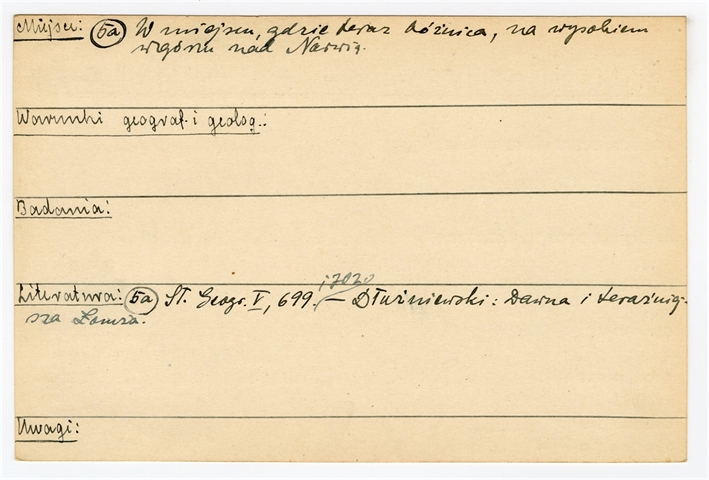 Miejsce: 5a W miejscu, gdzie teraz bóżnica, na wysokiem
wzgórzu nad Narwią.
Warunki geograf. i geolog.:
Badania:
Literatura: 5a Sł. Geogr. V, 699. i 7020 — Dłużniewski: Dawna i teraźniej-
sza Łomża.
Uwagi: